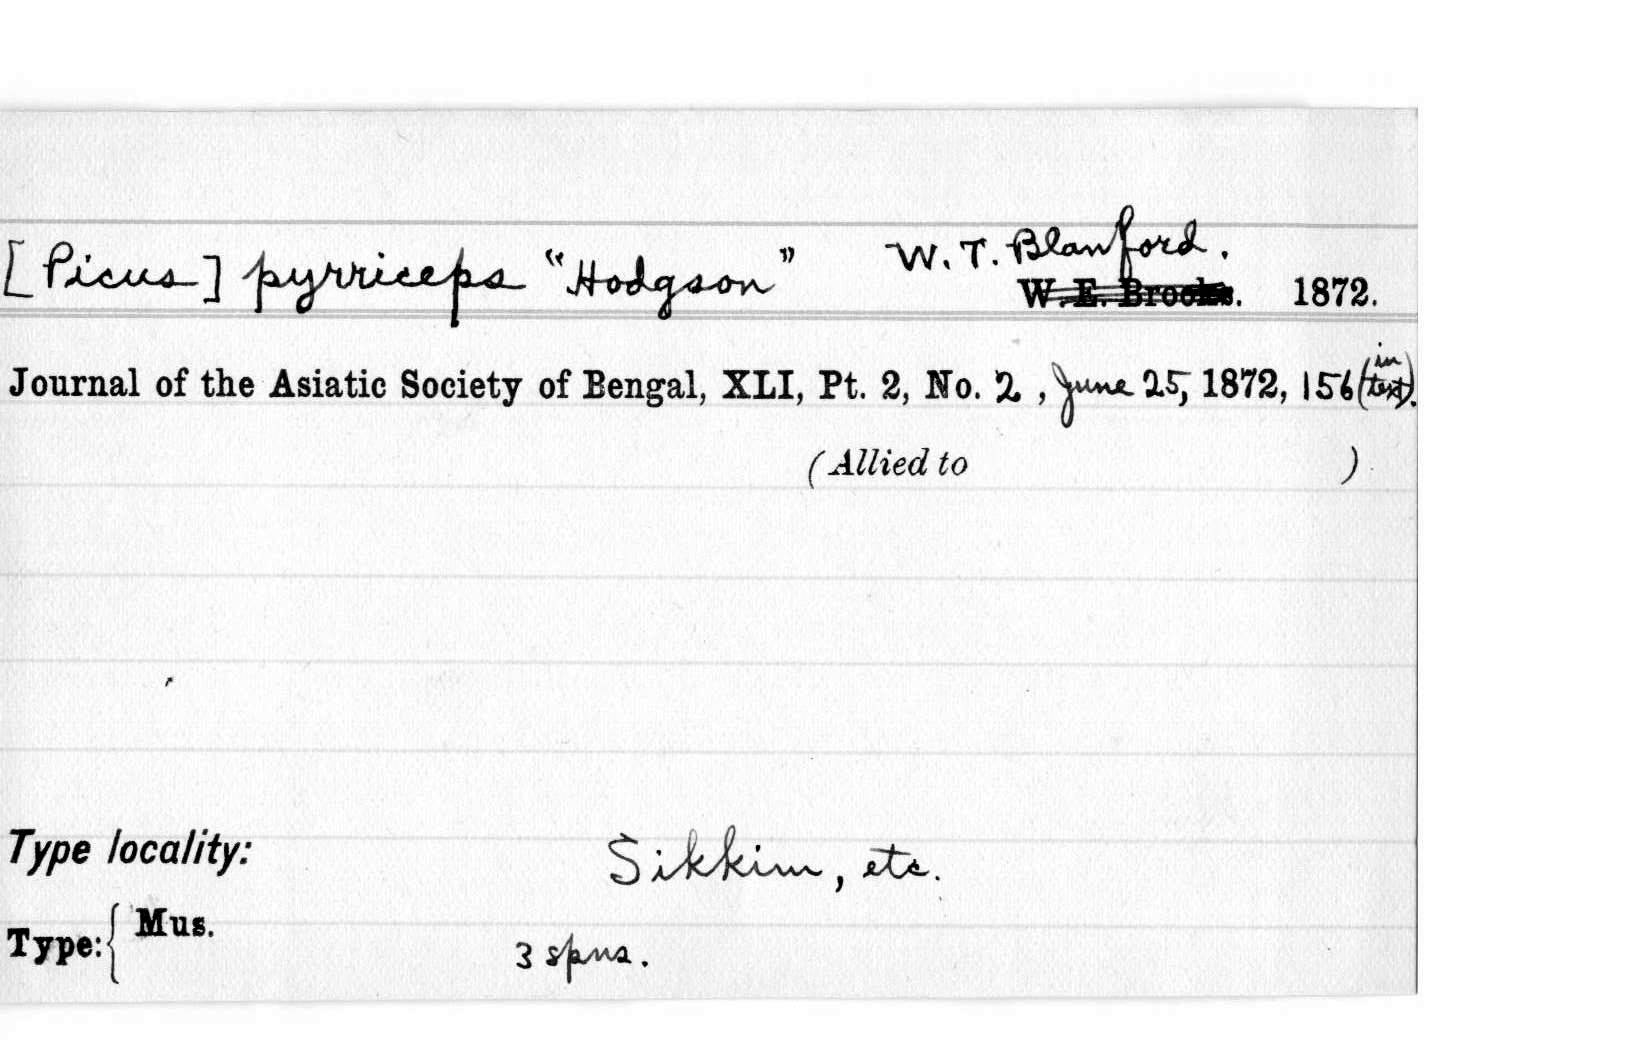 [Picus] pyrriceps "Hodgson" W. T. Blanford.
W. E. Brooks. 1872.
Journal of the Asiatic Society of Bengal, XLI, Pt. 2, No. 2, June 25, 1872, 156 (in text).
(Allied to )
Type locality: Sikkim, etc.
Type: { Mus.
3 spns.